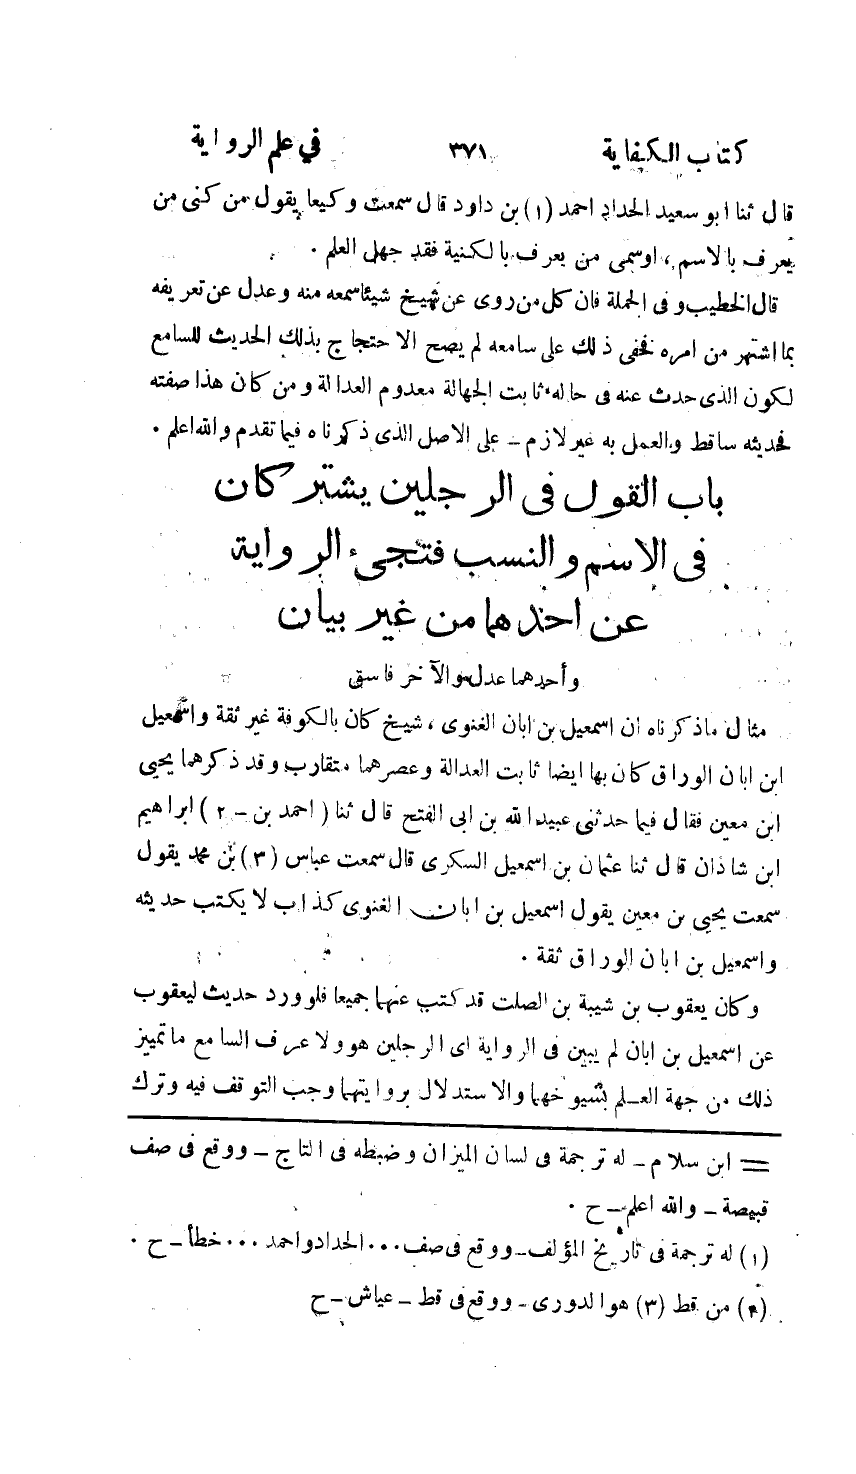 كتاب الكفاية ٣٧١ في علم الرواية
قال ثنا ابو سعيد الحداد احمد (١) بن داود قال سمعت وكيعا يقول من كنى من
يعرف بالاسم، اوسمى من يعرف بالكنية فقد جهل العلم .
قال الخطيب وفى الجملة فان كل من روى عن شيخ شيئا سمعه منه وعدل عن تعريفه
بما اشتهر من امره فخفى ذلك على سامعه لم يصح الاحتجاج بذلك الحديث للسامع
لكون الذى حدث عنه فى حاله ثابت الجهالة معدوم العدالة ومن كان هذا صفته
فحديثه ساقط والعمل به غير لازم ـ على الاصل الذى ذكرناه فيما تقدم والله اعلم .
باب القول فى الرجلين يشتركان
فى الاسم والنسب فتجىء الرواية
عن احدهما من غير بيان
وأحدهما عدل والآخر فاسق
مثال ماذكرناه ان اسمعيل بن ابان الغنوى، شيخ كان بالكوفة غير ثقة واسمعيل
ابن ابان الوراق كان بها ايضا ثابت العدالة وعصرهما متقارب وقد ذكرهما يحيى
ابن معين فقال فيما حدثنى عبيد الله بن ابى الفتح قال ثنا ( احمد بن - ٢ ) ابراهيم
ابن شاذان قال ثنا عثمان بن اسمعيل السكرى قال سمعت عباس (٣) بن محمد يقول
سمعت يحيى بن معين يقول اسمعيل بن ابان الغنوى كذاب لا يكتب حديثه
واسمعيل بن ابان الوراق ثقة .
وكان يعقوب بن شيبة بن الصلت قد كتب عنهما جميعا فلو ورد حديث ليعقوب
عن اسمعيل بن ابان لم يبين فى الرواية اى الرجلين هو ولا عرف السامع ما تمييز
ذلك من جهة العلم بشيوخهما والاستدلال بروايتهما وجب التوقف فيه وترك
= ابن سلام ـ له ترجمة فى لسان الميزان وضبطه فى التاج ـ ووقع فى صف
قبيصة ـ والله اعلم ـ ح .
(١) له ترجمة فى تاريخ المؤلف ـ ووقع فى صف ... الحداد واحمد ... خطأ ـ ح .
(٢) من قط (٣) هو الدورى ـ ووقع فى قط ـ عياش ـ ح